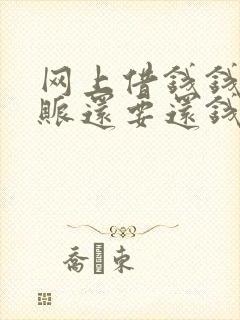 网上借钱钱
赈还要还钱
乔東